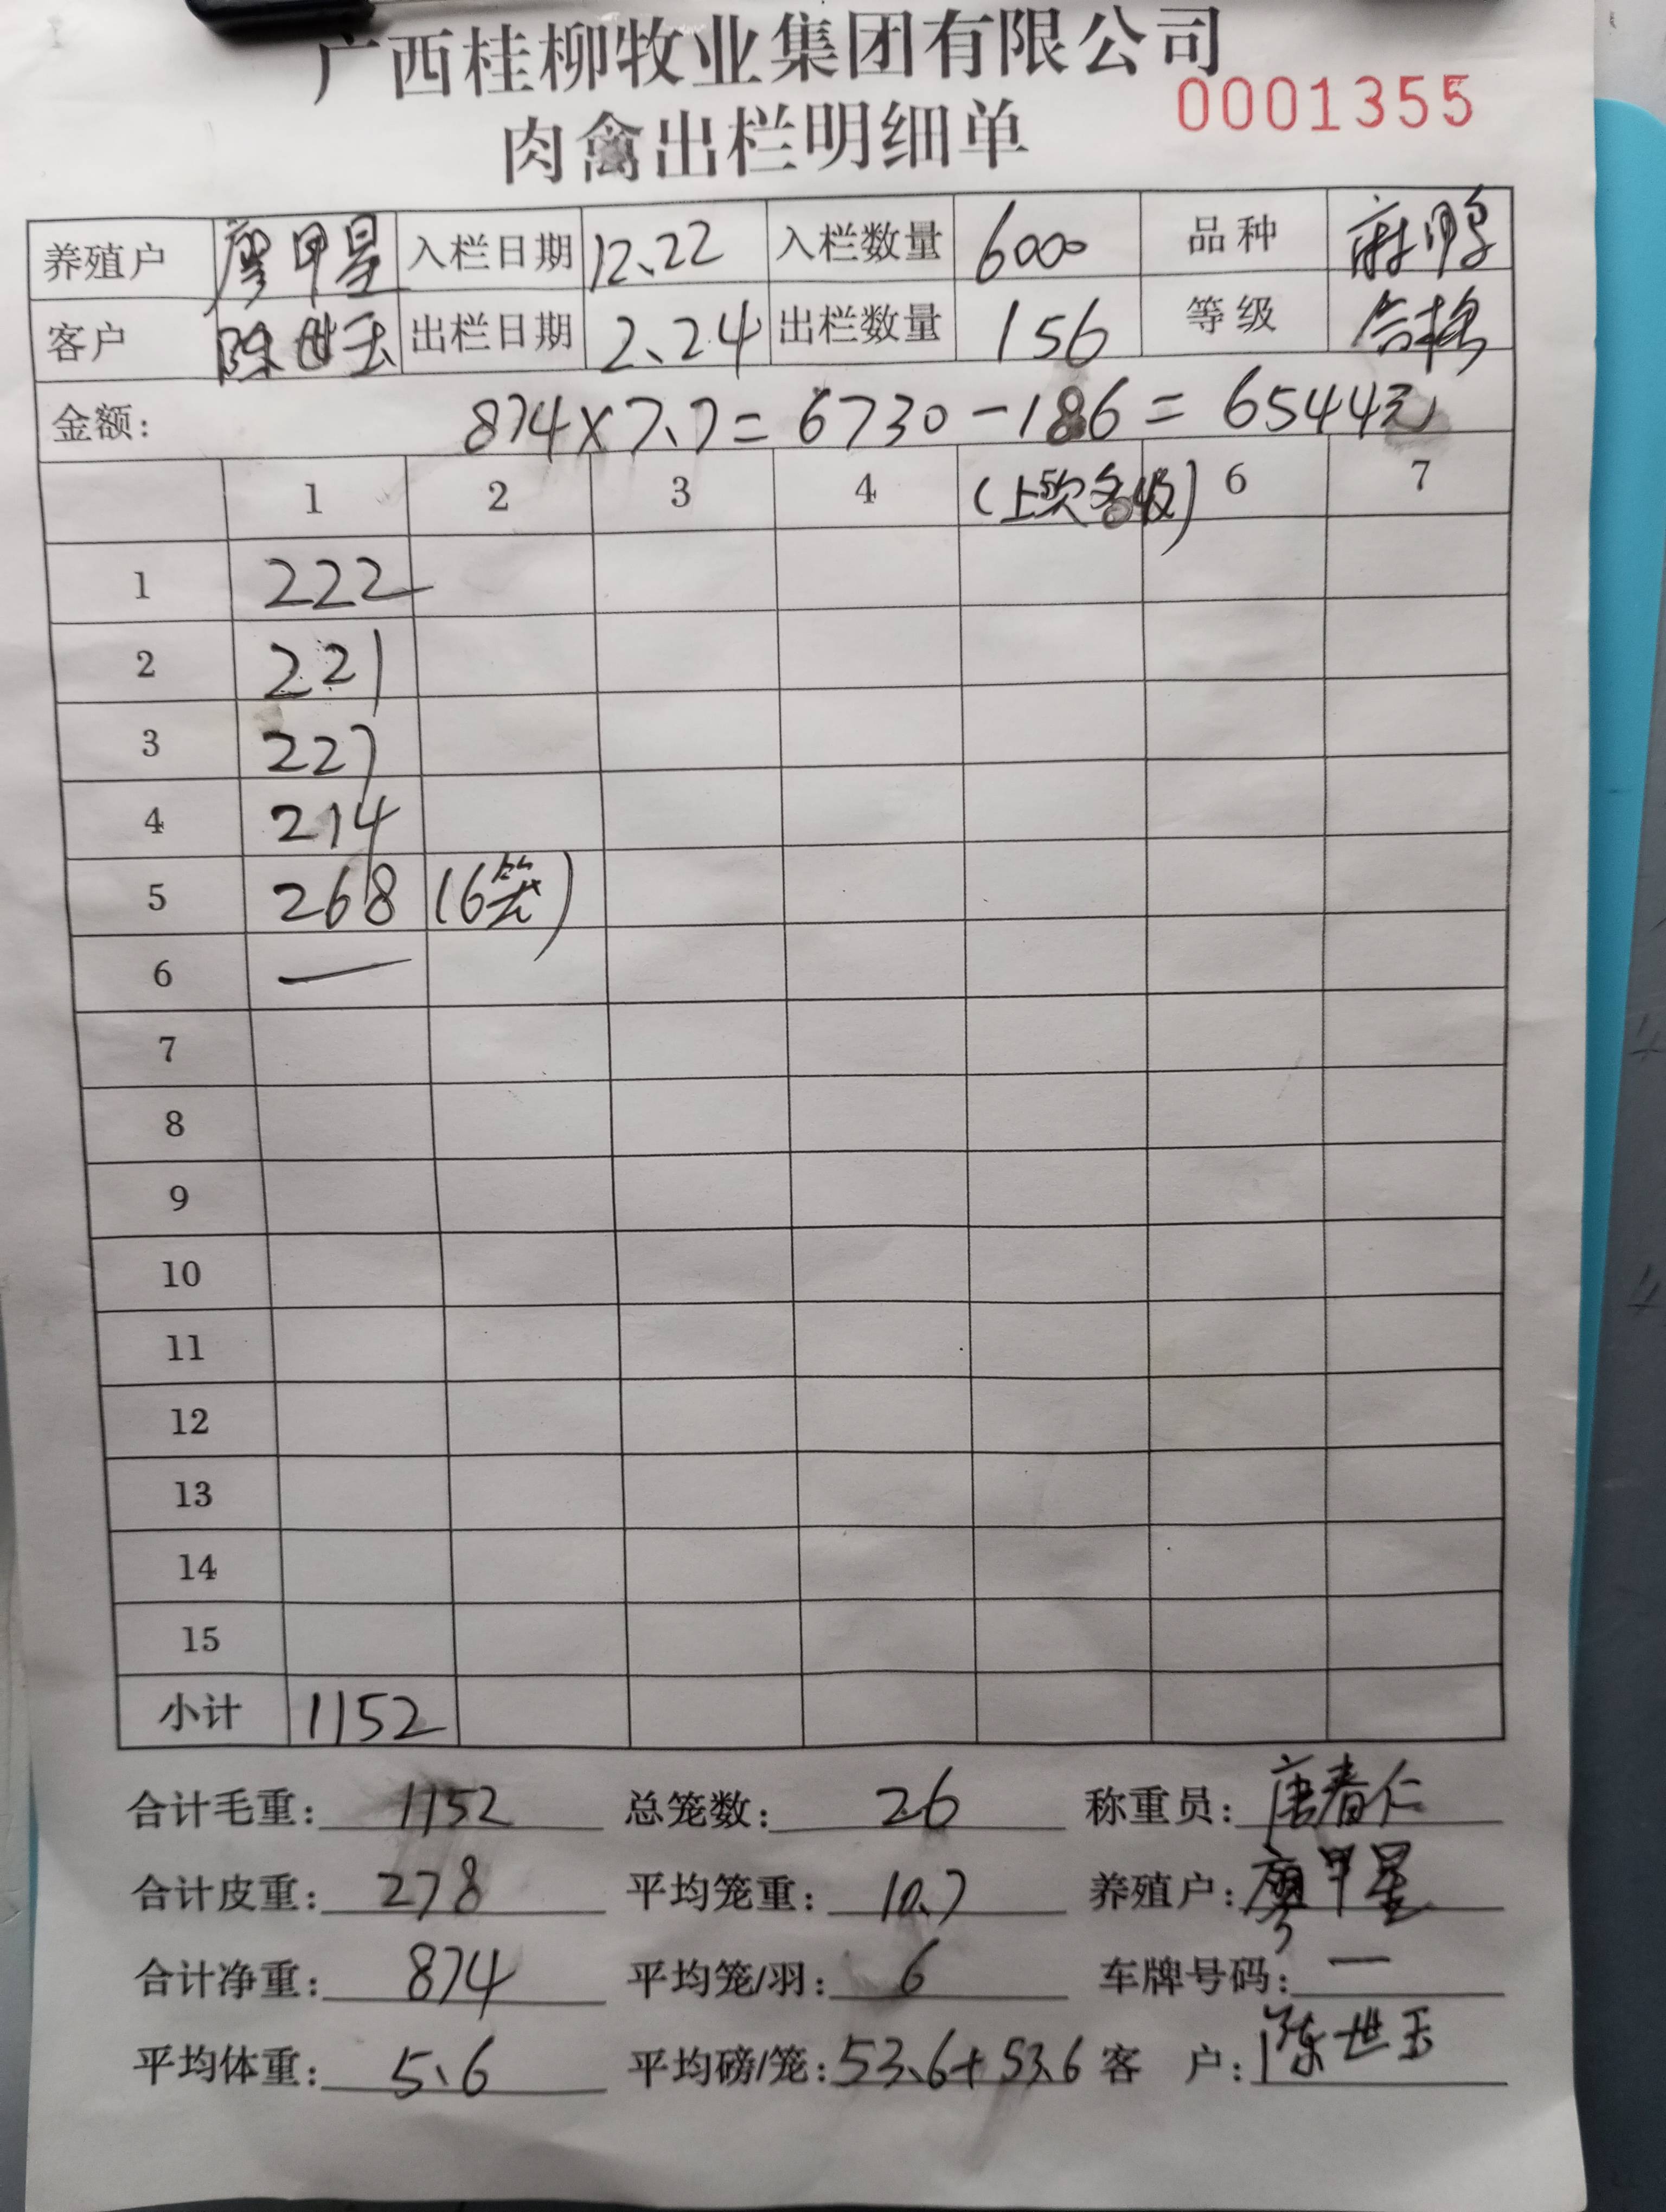 广西桂柳牧业集团有限公司
肉禽出栏明细单 0001355
养殖户 廖甲星 入栏日期 12、22 入栏数量 6000 品种 麻鸭
客户 陈世玉 出栏日期 2、24 出栏数量 156 等级 合格
金额: 874×7、7=6730-186=6544元
1 2 3 4 (上欠 6 7
1 222
2 221
3 227
4 214
5 268 (6笼)
6 —
7
8
9
10
11
12
13
14
15
小计 1152
合计毛重: 1152 总笼数: 26 称重员: 唐春仁
合计皮重: 278 平均笼重: 10、7 养殖户: 廖甲星
合计净重: 874 平均笼/羽: 6 车牌号码: —
平均体重: 5、6 平均磅/笼: 53、6+53、6 客 户: 陈世玉